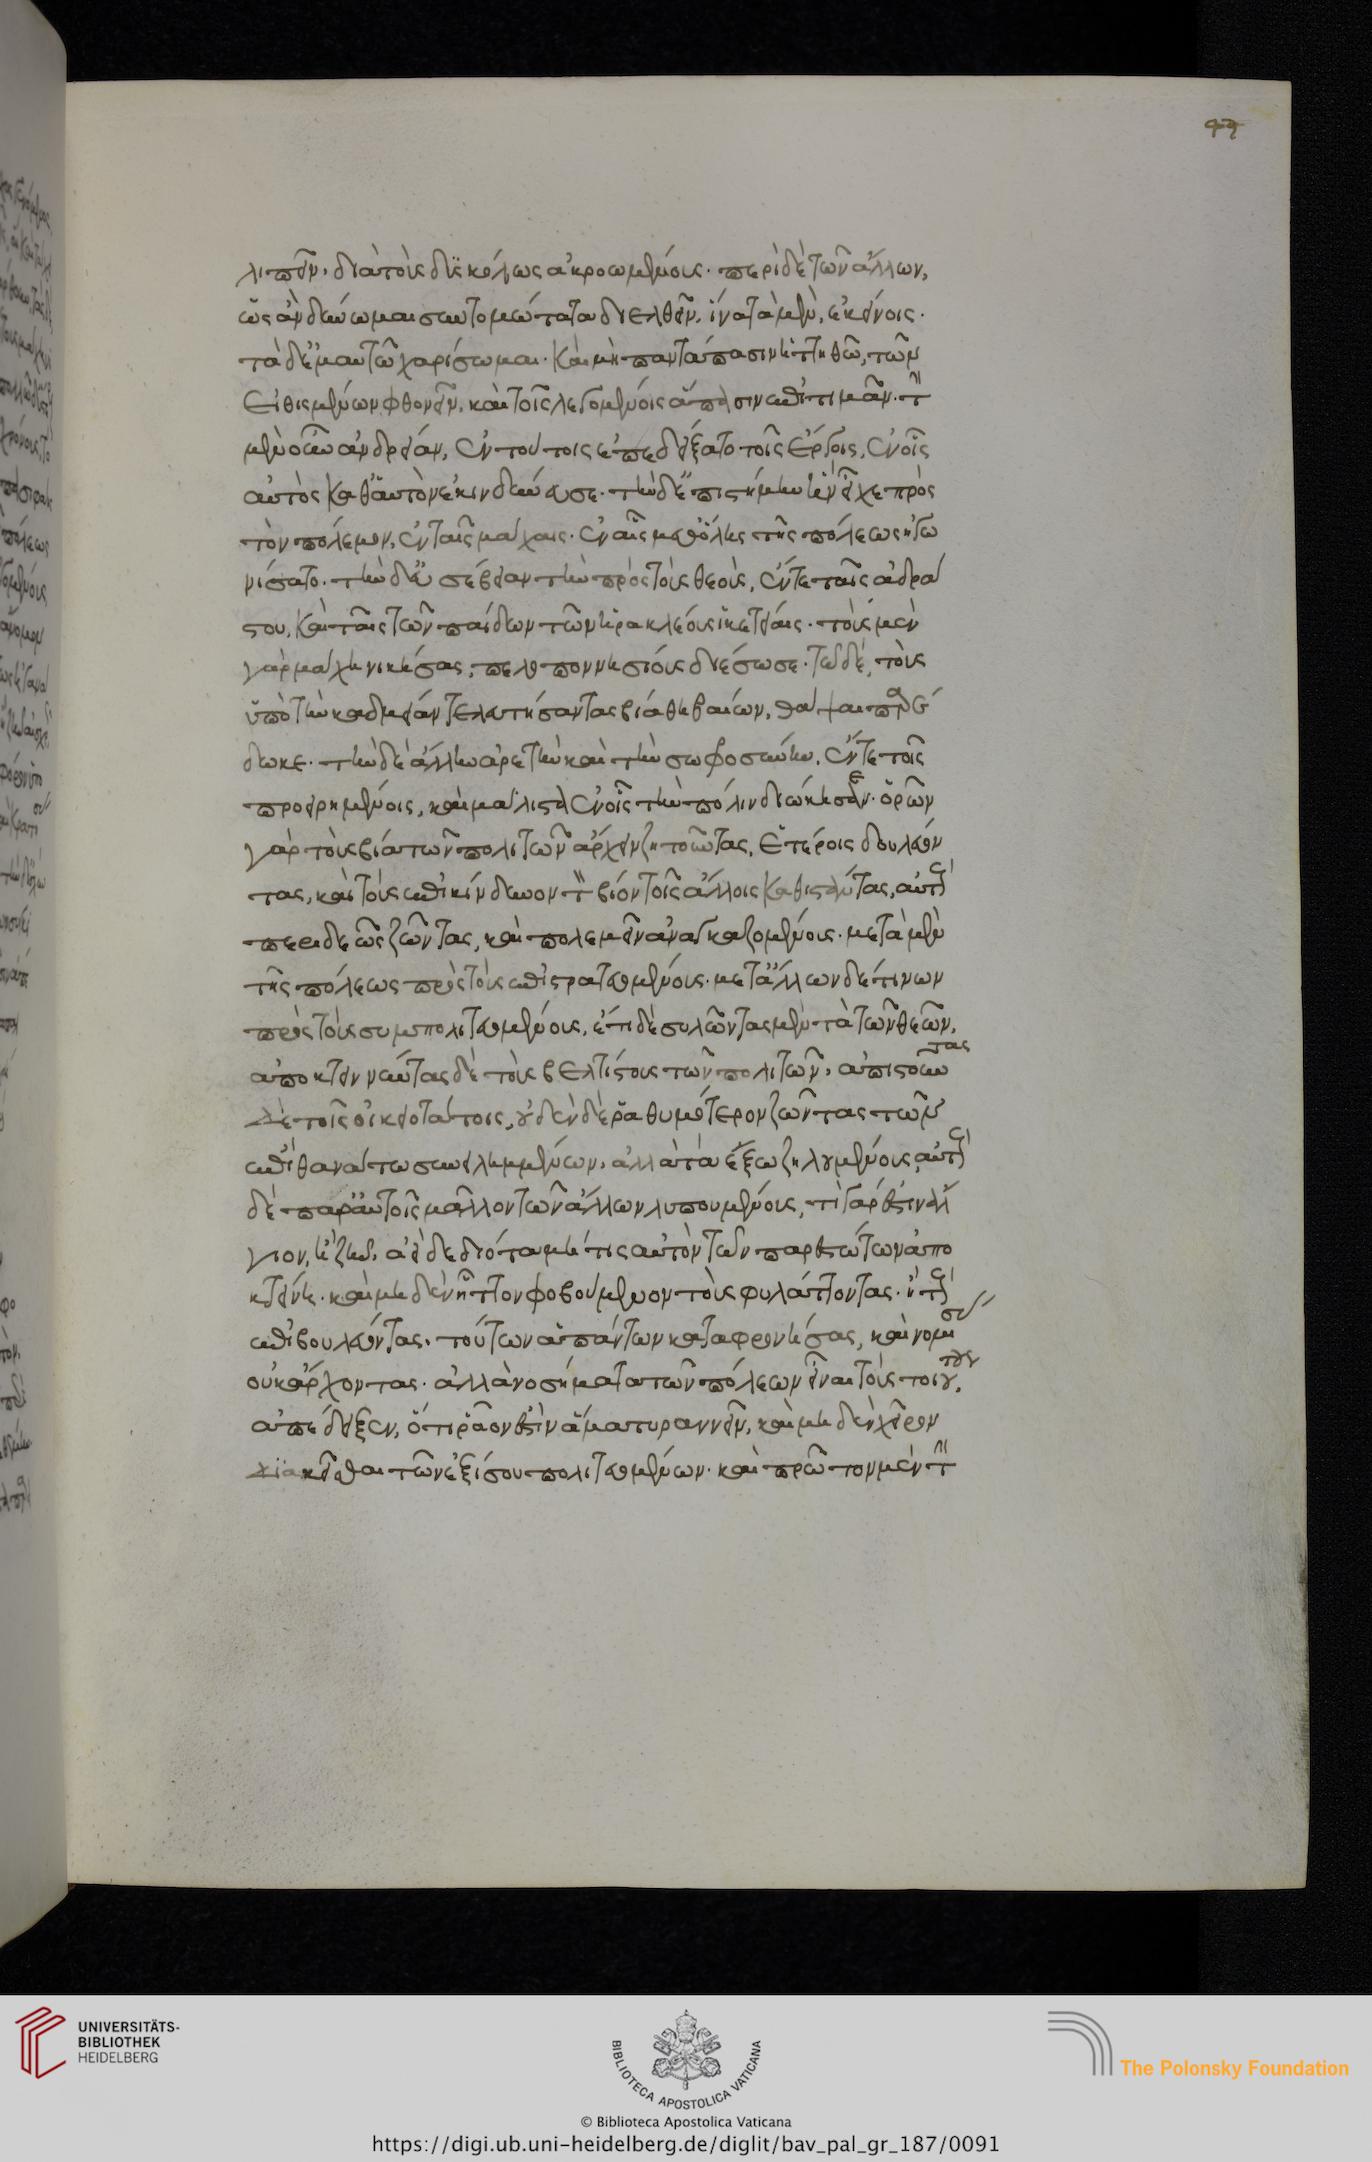 λιπεῖν, διὰ τοὺς δϋσκόλως ἀκροωμένους· περὶ δὲ τῶν ἄλλων,
ὡς ἂν δύνωμαι συντομώτατα διελθεῖν, ἵνα τὰ μὲν, ἐκείνοις·
τὰ δ' ἐμαυτῶ χαρίσωμαι· καὶ μὴ παντάπασιν ἡττηθῶ, τῶν
εἰθισμένων φθονεῖν, καὶ τοῖς λεγομένοις ἅπασιν ἐπιτιμᾶν· τὴν
μὲν οὖν ἀνδρείαν, ἐν τούτοις ἐπεδείξατο τοῖς ἔργοις, ἐν οἷς
αὐτὸς καθ' αὑτὸν ἐκινδύνευσε· τὴν δ' ἐπιστήμην ἣν εἶχε πρὸς
τὸν πόλεμον, ἐν ταῖς μάχαις· ἐν αἷς μεθ' ὅλης τῆς πόλεως ἠγω
νίσατο· τὴν δ' εὐσέβειαν τὴν πρὸς τοὺς θεοὺς, ἔν τε ταῖς ἀδρά
στου, καὶ ταῖς τῶν παίδων τῶν ἡρακλέους ἱκετείαις· τοὺς μὲν
γὰρ μάχη νικήσας, πελοποννησίους διέσωσε· τῶ δὲ, τοὺς
ὑπὸ τὴν καδμείαν τελευτήσαντας βία θηβαίων, θάψαι παρέ
δωκε· τὴν δὲ ἄλλην ἀρετὴν καὶ τὴν σωφροσύνην, ἔν τε τοῖς
προειρημένοις, καὶ μάλιστα ἐν οἷς τὴν πόλιν διώκησεν· ὁρῶν
γὰρ τοὺς βία τῶν πολιτῶν ἄρχειν ζητοῦντας, ἑτέροις δουλεύον
τας, καὶ τοὺς ἐπικίνδυνον τὸν βίον τοῖς ἄλλοις καθιστάντας, αὐτοὺς
περιδεῶς ζῶντας, καὶ πολεμεῖν ἀναγκαζομένους· μετὰ μὲν
τῆς πόλεως πρὸς τοὺς ἐπιστρατευομένους· μετ' ἄλλων δέ τινων
πρὸς τοὺς συμπολιτευομένους, ἔτι δὲ συλῶντας μὲν τὰ τῶν θεῶν,
ἀποκτείννύντας δὲ τοὺς βελτίστους τῶν πολιτῶν, ἀπιστοῦντας
δὲ τοῖς οἰκειοτάτοις, οὐδὲν δὲ ῥᾳθυμότερον ζῶντας τῶν
ἐπὶ θανάτω συνειλημμένων, ἀλλὰ τὰ ἔξω ζηλουμένους, αὐτοὺς
δὲ παρ' αὑτοῖς μᾶλλον τῶν ἄλλων λυπουμένους, τί γάρ ἐστιν ἄλ
γιον, ἢ ζῆν, ἀεὶ δεδιότα μή τις αὐτὸν τῶν παρεστώτων ἀπο
κτείνη· καὶ μηδὲν ἧττον φοβούμενον τοὺς φυλάττοντας· ἢ τοὺς
ἐπιβουλεύοντας· τούτων ἁπάντων καταφρονήσας, καὶ νομίσας
οὐκ ἄρχοντας· ἀλλὰ νοσήματα τῶν πόλεων εἶναι τοὺς τοιούτους,
ἀπέδειξεν, ὅτι ῥᾷόν ἐστιν ἅμα τυραννεῖν, καὶ μηδὲν χεῖρον
διακεῖσθαι τῶν ἐξ ἴσου πολιτευομένων· καὶ πρῶτον μὲν τὴν
UNIVERSITÄTS-
BIBLIOTHEK
HEIDELBERG
BIBLIOTECA APOSTOLICA VATICANA
The Polonsky Foundation
© Biblioteca Apostolica Vaticana
https://digi.ub.uni-heidelberg.de/diglit/bav_pal_gr_187/0091